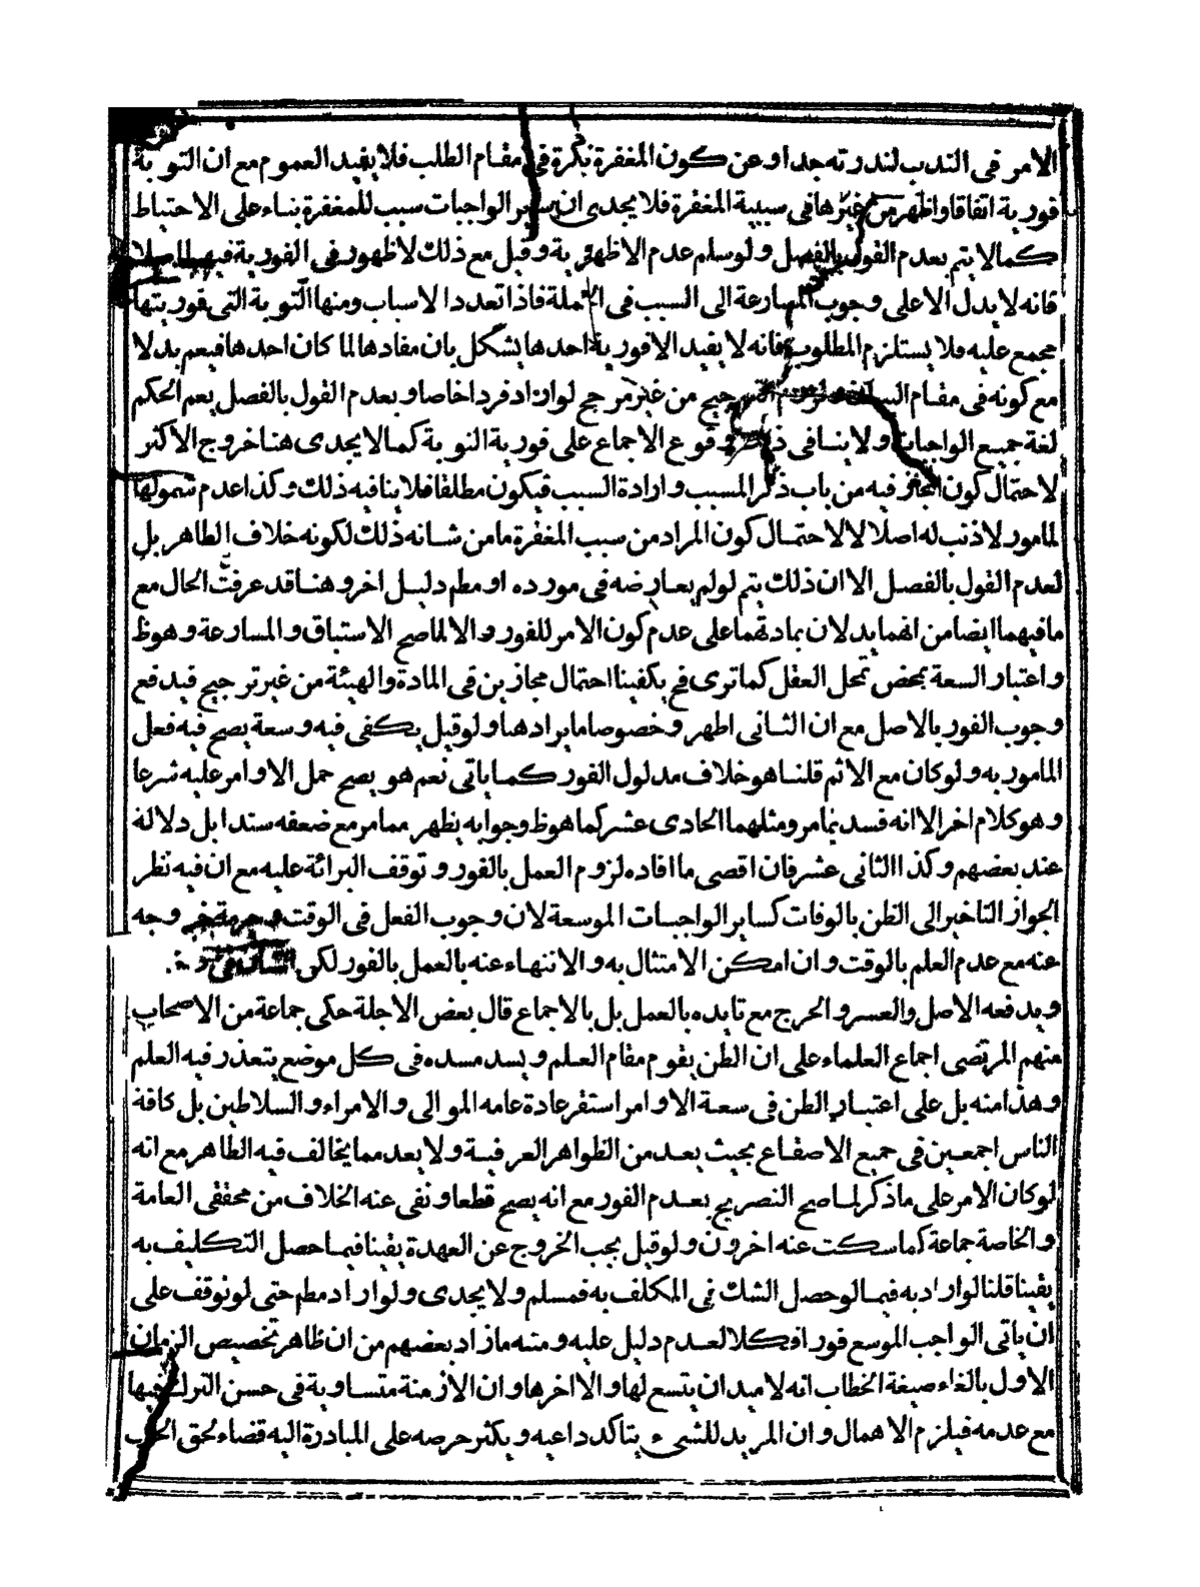 الامر فى الندب لندرته جدا وعن كون المغفرة نكرة فى مقام الطلب فلا يفيد العموم مع ان التوبة
فورية اتفاقا واظهر من غيرها فى سببية المغفرة فلا يجدى ان ساير الواجبات سبب للمغفرة بناء على الاحتياط
كما لا يتم بعدم القول بالفصل ولو سلم عدم الاظهرية وقيل مع ذلك لا ظهور فى الفورية فيهما اصلا
فانه لا يدل الا على وجوب المسارعة الى السبب فى الجملة فاذا تعدد الاسباب ومنها التوبة التى بفوريتها
مجمع عليه فلا يستلزم المطلوب فانه لا يفيد الا فورية احدها يشكل بان مفادها لما كان احدها فيعم بدلا
مع كونه فى مقام الترجيح من غير مرجح لو اراد فردا خاصا وبعدم القول بالفصل يعم الحكم
لغة جميع الواجبات ولا ينافى وقوع الاجماع على فورية التوبة كما لا يجدى هنا خروج الاكثر
لاحتمال كون التجوز فيه من باب ذكر المسبب وارادة السبب فيكون مطلقا فلا ينافيه ذلك وكذا عدم شمولها
لمامور لا ذنب له اصلا لا لاحتمال كون المراد من سبب المغفرة ما من شانه ذلك لكونه خلاف الظاهر بل
لعدم القول بالفصل الا ان ذلك يتم لو لم يعارضه فى مورده او مطم دليل اخر وهنا قد عرفت الحال مع
ما فيهما ايضا من انهما يدلان بمادتهما على عدم كون الامر للفور والا لما صح الاستباق والمسارعة وهو ظ
واعتبار السعة بمحض تمحل العقل كما ترى فح يكفينا احتمال مجازين فى المادة والهيئة من غير ترجيح فيدفع
وجوب الفور بالاصل مع ان الثانى اظهر وخصوصا ما يرادها ولو قيل يكفى فيه وسعة يصح فيه فعل
المامور به ولو كان مع الاثم قلنا هو خلاف مدلول الفور كما ياتى نعم هو يصح حمل الاوامر عليه شرعا
وهو كلام اخر الا انه فسد بما مر ومثلهما الحادى عشر كما هو ظ وجوابه يظهر مما مر مع ضعفه سندا بل دلالة
عند بعضهم وكذا الثانى عشر فان اقصى ما افاده لزوم العمل بالفور وتوقف البرائة عليه مع ان فيه نظر
الجواز التاخير الى الظن بالوفات كساير الواجبات الموسعة لان وجوب الفعل فى الوقت وجه
عنه مع عدم العلم بالوقت وان امكن الامتثال به والانتهاء عنه بالعمل بالفور لكن
ويدفعه الاصل والعسر والحرج مع تايده بالعمل بل بالاجماع قال بعض الاجلة حكى جماعة من الاصحاب
منهم المرتضى اجماع العلماء على ان الظن يقوم مقام العلم ويسد مسده فى كل موضع يتعذر فيه العلم
وهذا منه بل على اعتبار الظن فى سعة الاوامر استقر عادة عامه الموالى والامراء والسلاطين بل كافة
الناس اجمعين فى جميع الاصقاع بحيث يعد من الظواهر العرفية ولا يعد مما يخالف فيه الظاهر مع انه
لو كان الامر على ما ذكر لما صح التصريح بعدم الفور مع انه يصح قطعا ونفى عنه الخلاف من محققى العامة
والخاصة جماعة كما سكت عنه اخرون ولو قيل يجب الخروج عن العهدة يقينا فيما حصل التكليف به
يقينا قلنا لو اراد به فيما لو حصل الشك فى المكلف به فمسلم ولا يجدى ولو اراد مطم حتى لو توقف على
ان ياتى الواجب الموسع فورا فكلا لعدم دليل عليه ومنه ما زاد بعضهم من ان ظاهر تخصيص الزمان
الاول بالغاء صيغة الخطاب انه لا ميدان يتسع لها والا اخرها وان الازمنة متساوية فى حسن الترك فيها
مع عدمه فيلزم الاهمال وان المريد للشىء يتاكد داعيه ويكثر حرصه على المبادرة اليه قضاء لحق الحب